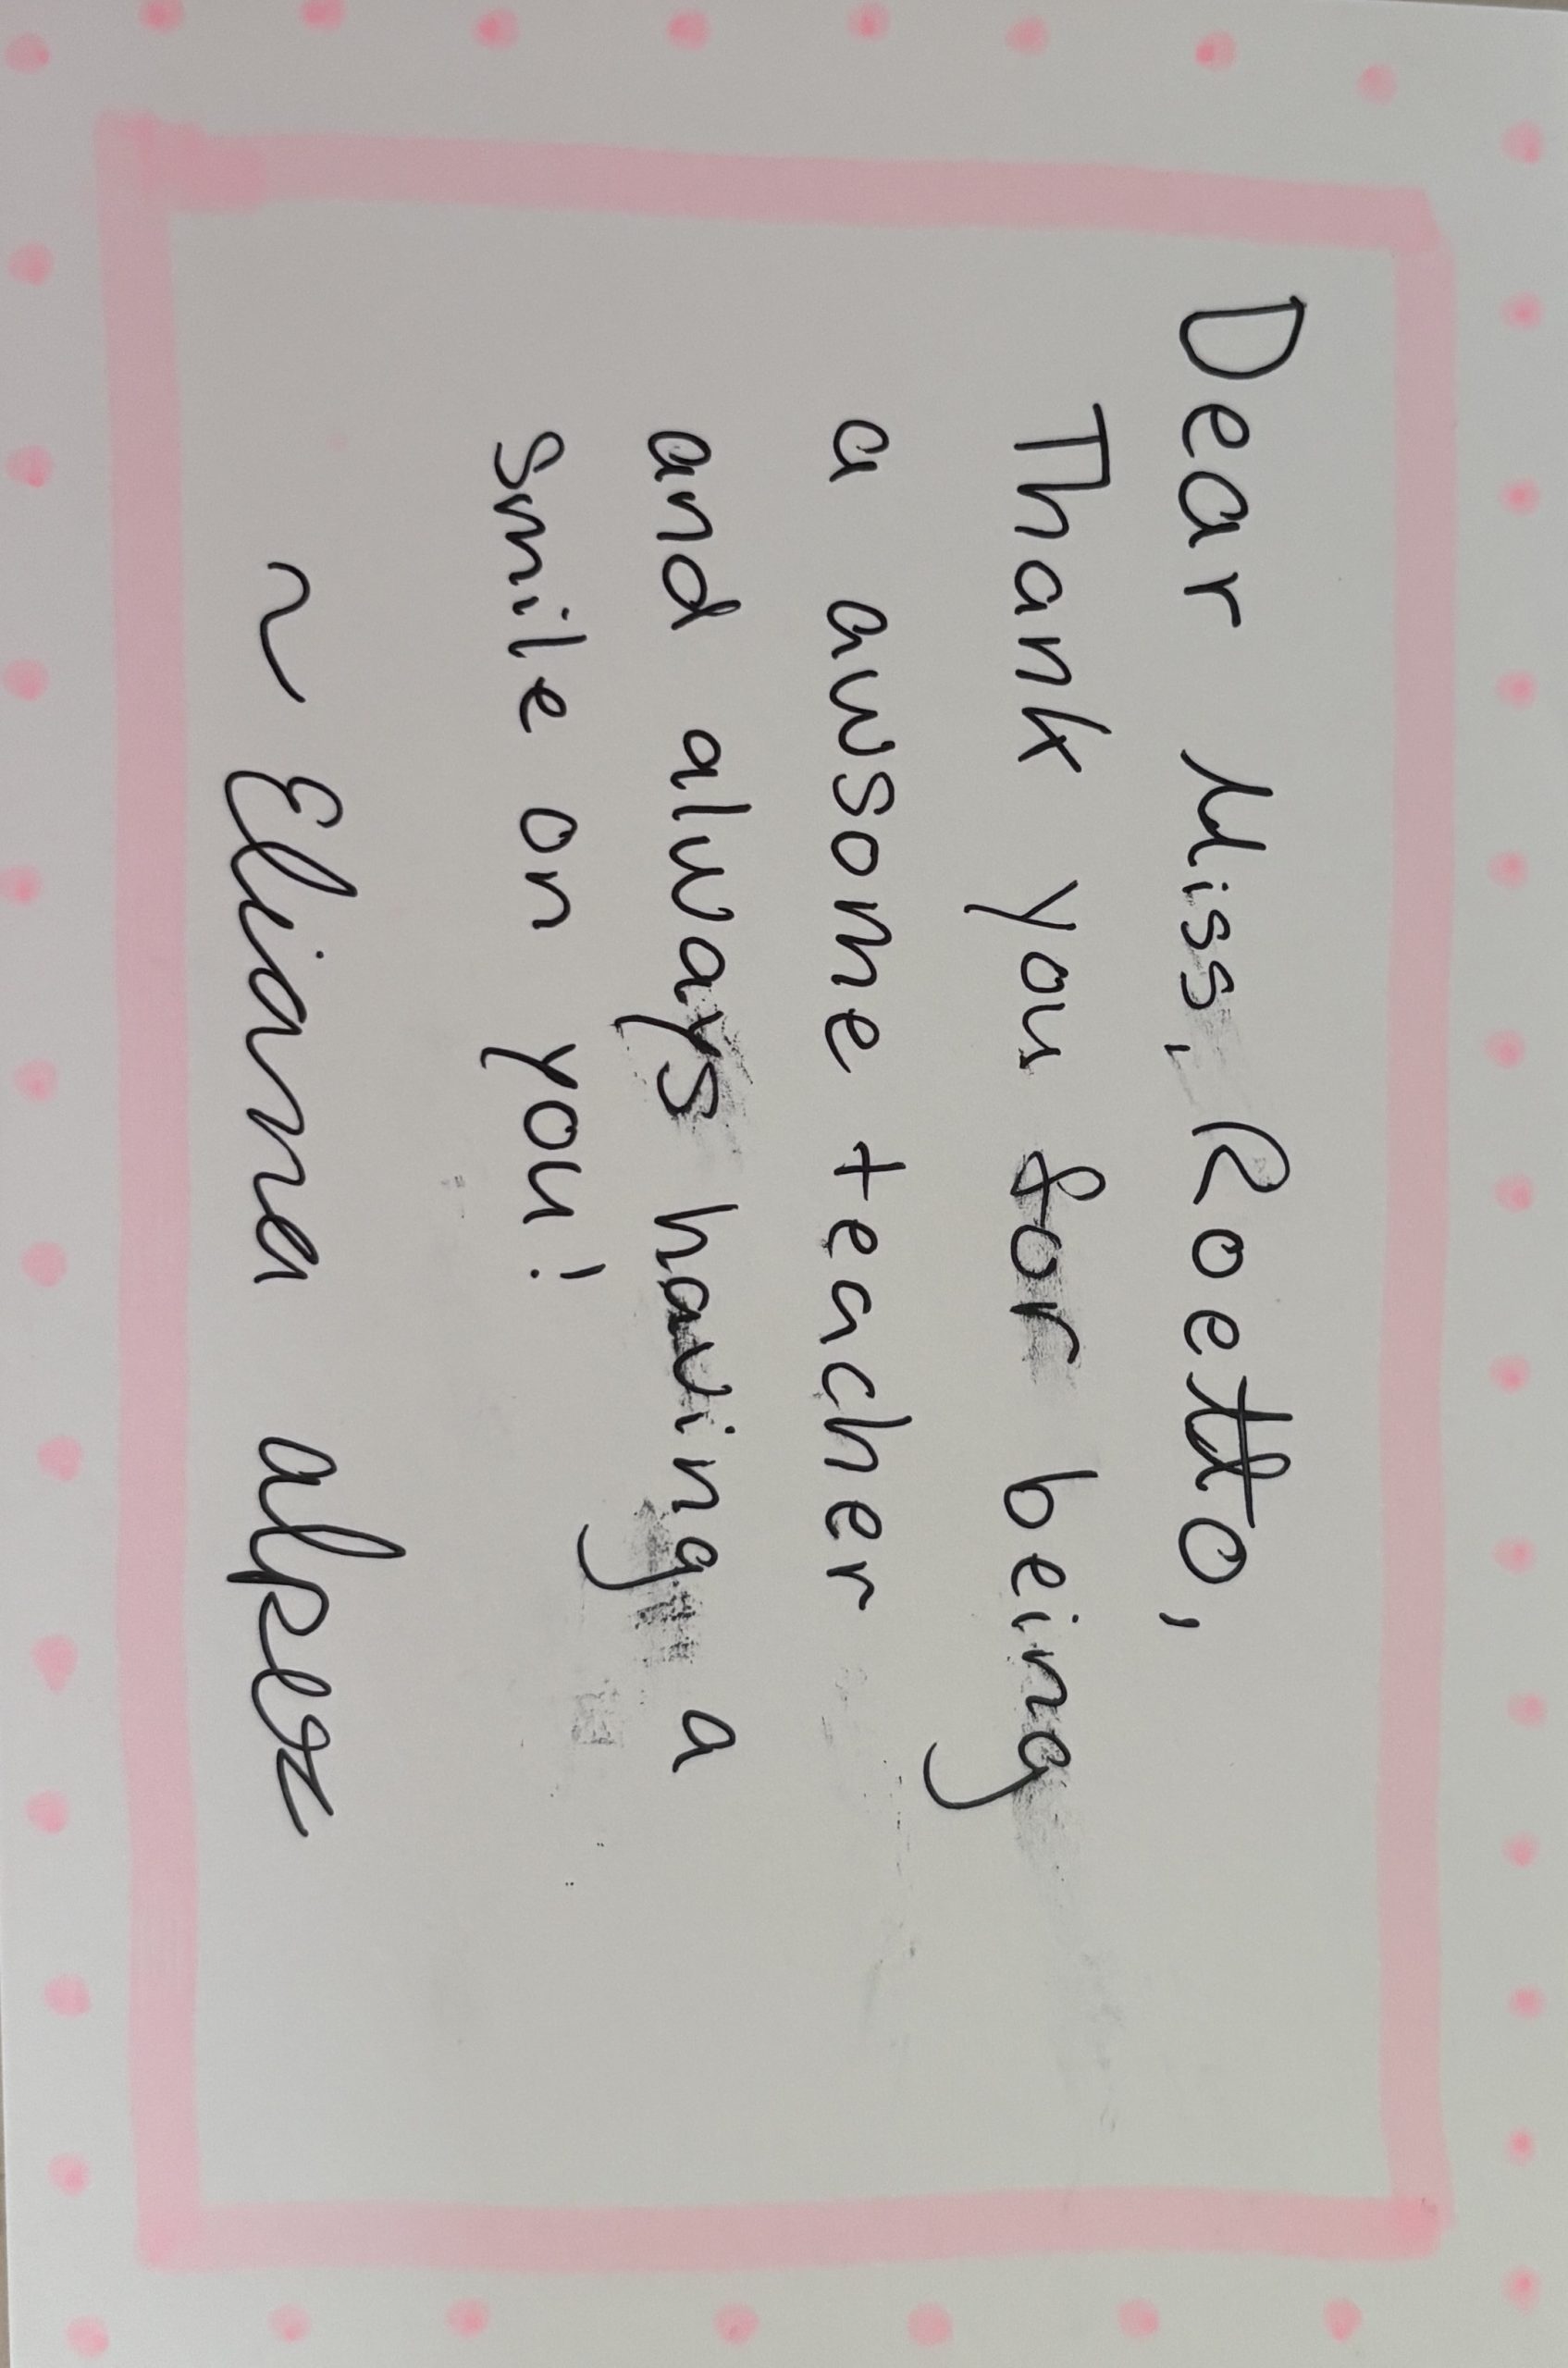 Dear Miss, Roetto,
Thank you for being
a awsome teacher
and always having a
smile on you!
~ Eliana alpesz